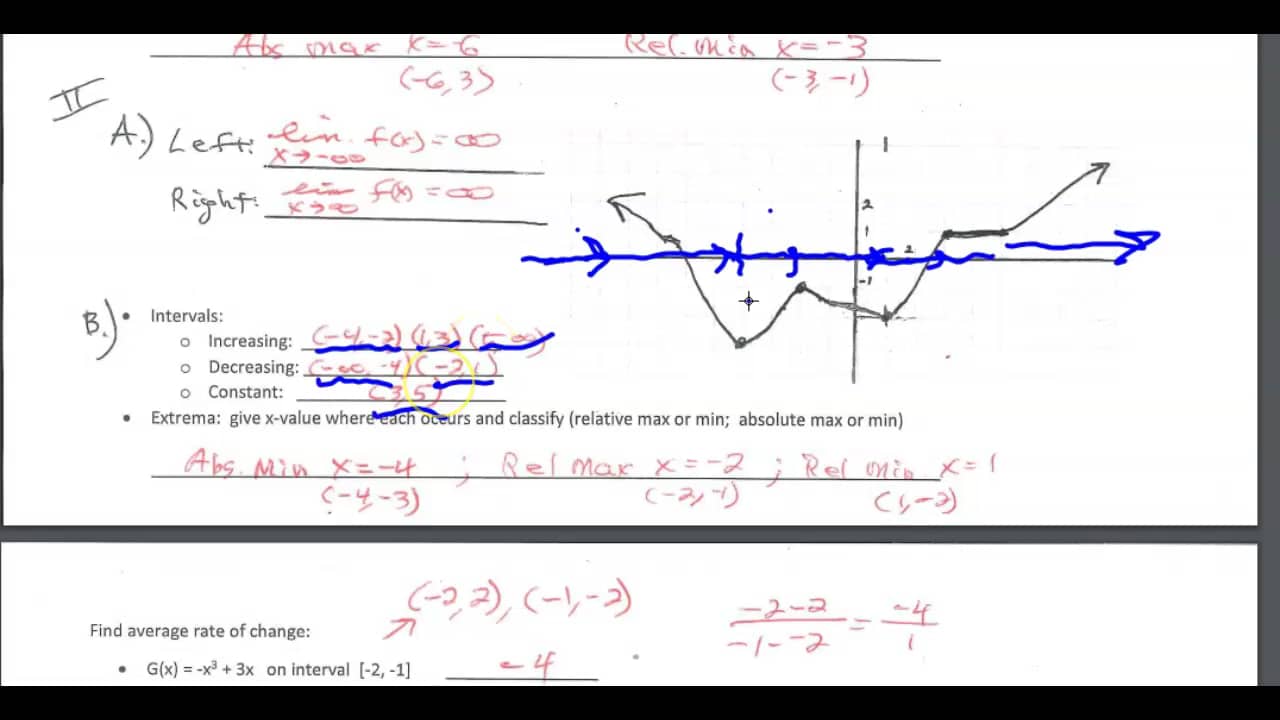 Abs max x=-6 Rel. min x=-3
(-6,3) (-3,-1)
II
A.) Left: lim f(x) = ∞
x→-∞
Right: lim f(x) = ∞
x→∞
1
2
1
2
-1
B.) • Intervals:
o Increasing: (-4,-2) (1,3) (5,∞)
o Decreasing: (-∞,-4) (-2,1)
o Constant: (3,5)
• Extrema: give x-value where each occurs and classify (relative max or min; absolute max or min)
Abs. Min x=-4 ; Rel max x=-2 ; Rel min x=1
(-4,-3) (-2,-1) (1,-2)
(-2,2), (-1,-2)
-2-2 / -1--2 = -4 / 1
Find average rate of change:
• G(x) = -x³ + 3x on interval [-2, -1] -4